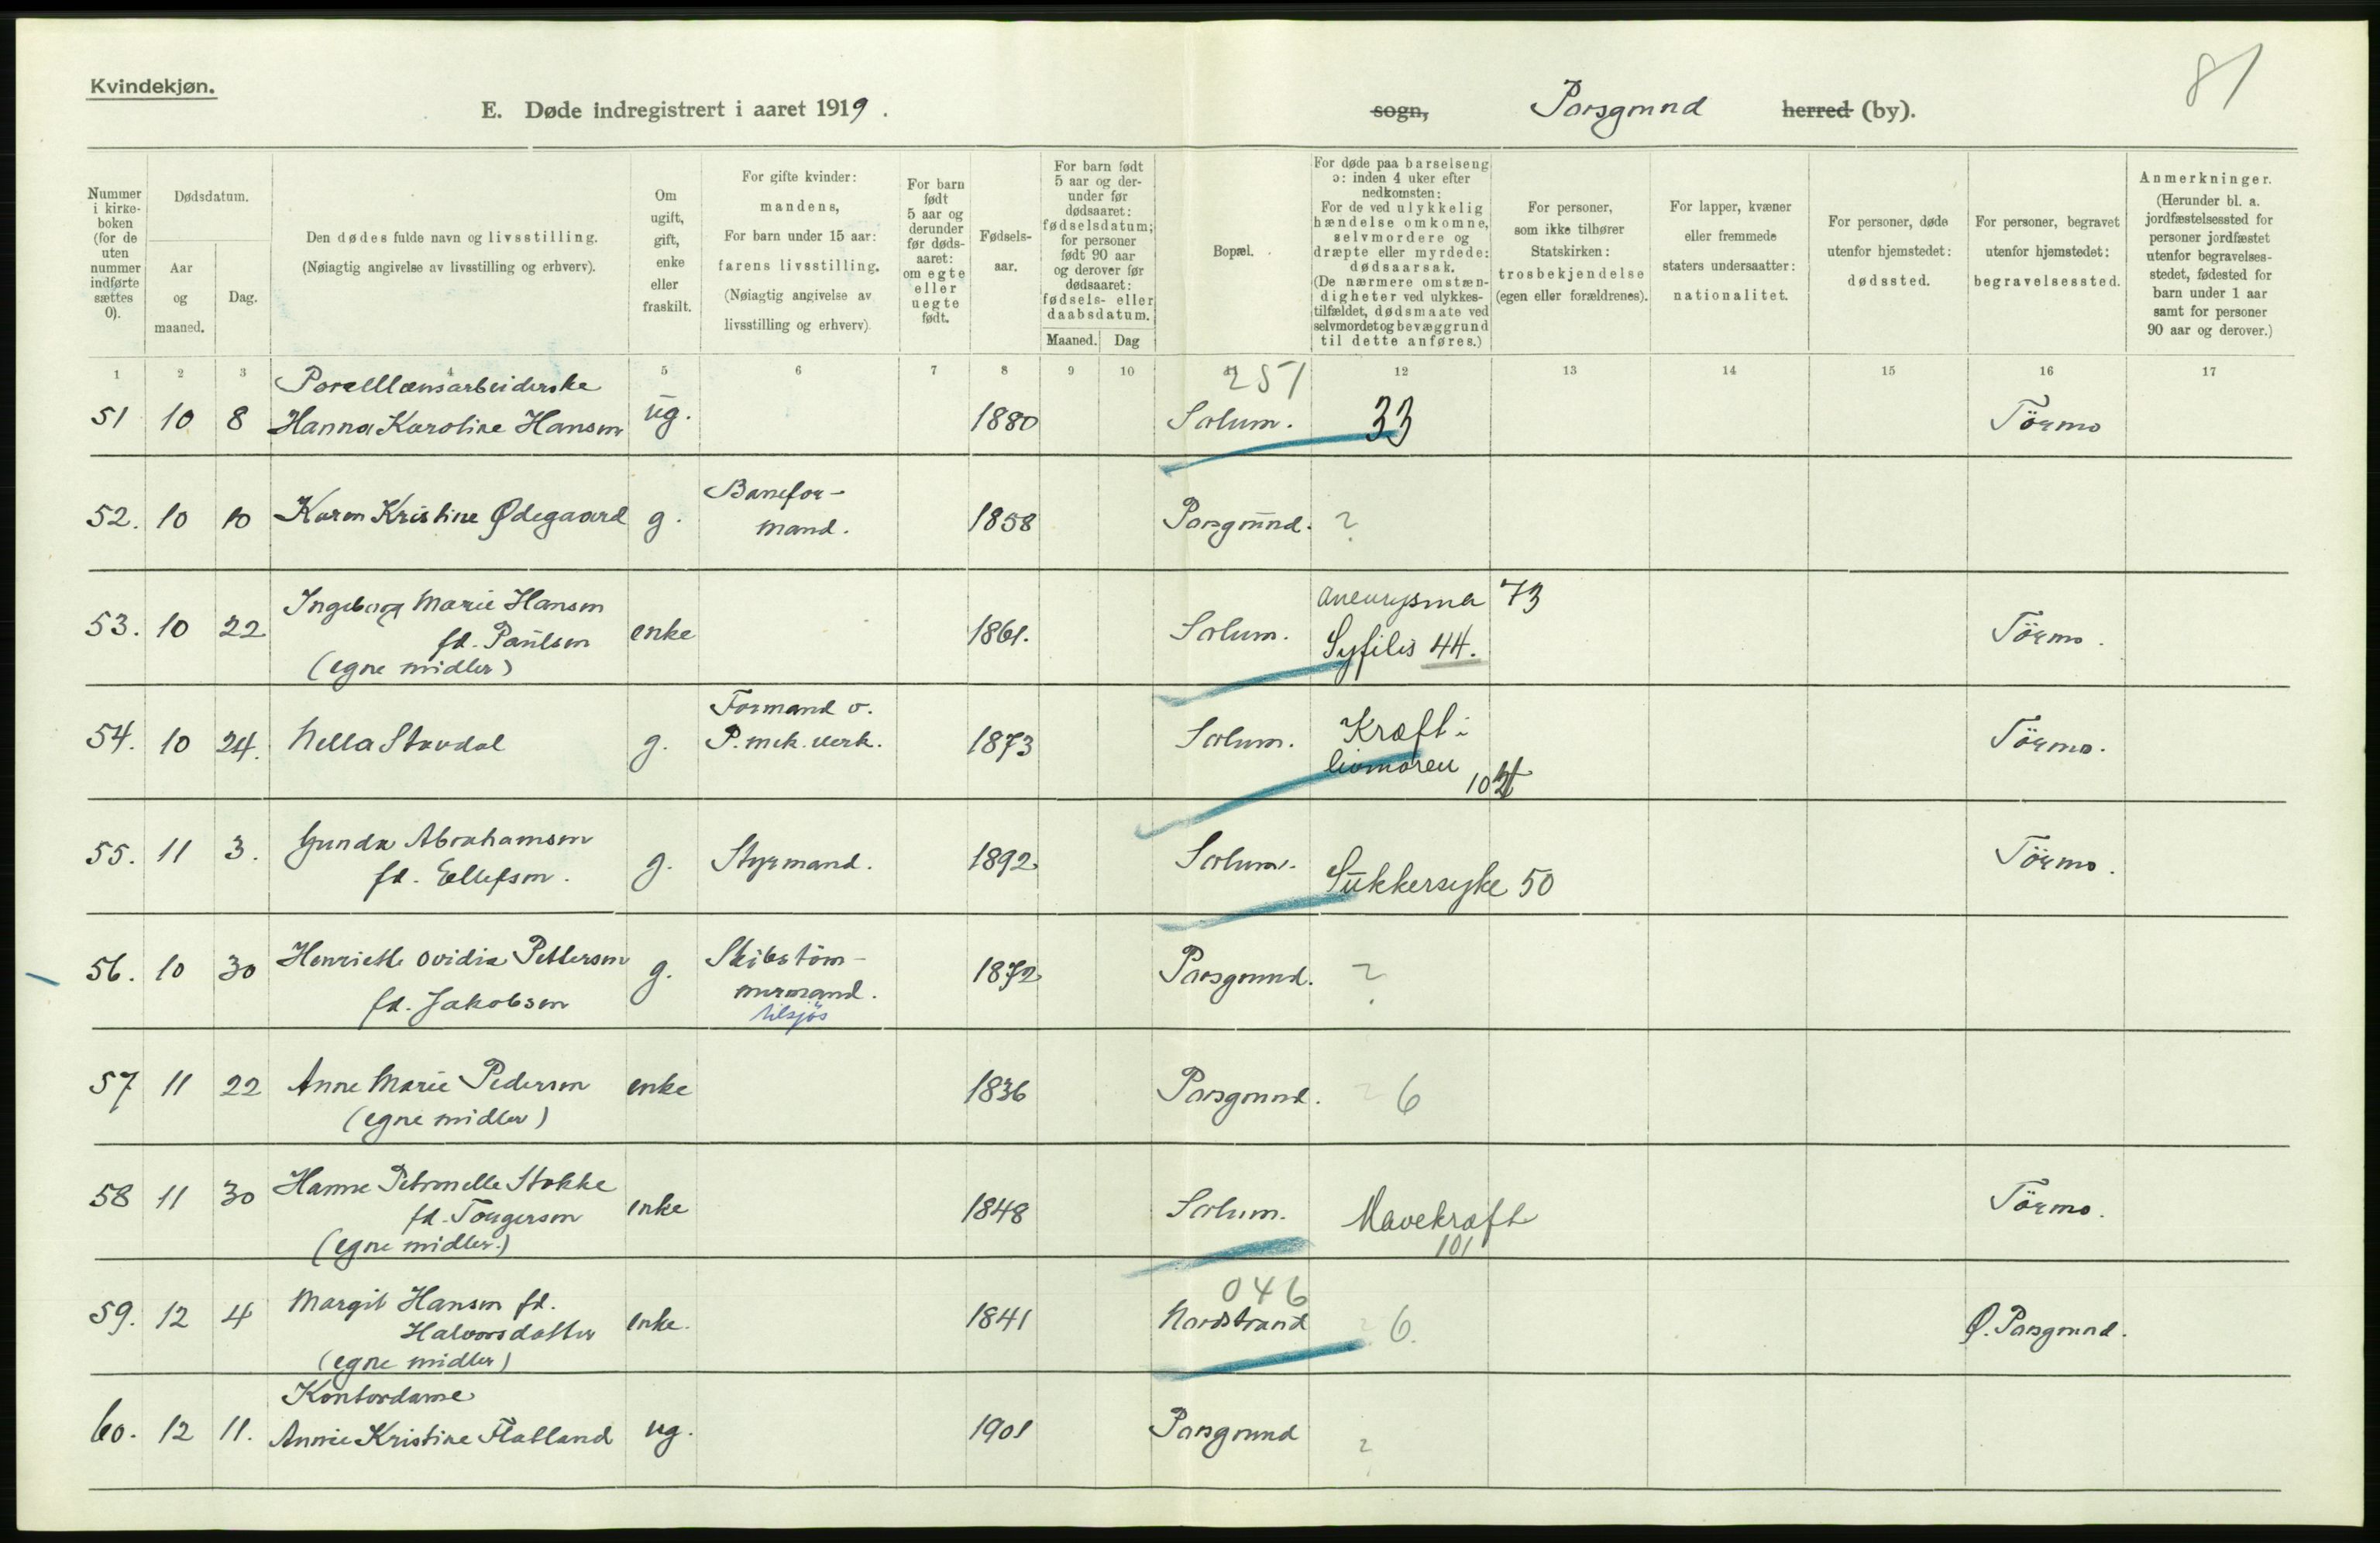 Kvindekjøn.
81
E. Døde indregistrert i aaret 1919.
sogn, Porsgrund herred (by).
Nummer i kirkeboken (for de uten nummer indførte sættes 0).
Dødsdatum.
Aar og maaned.
Dag.
Den dødes fulde navn og livsstilling.
(Nøiagtig angivelse av livsstilling og erhverv).
Om ugift, gift, enke eller fraskilt.
For gifte kvinder: mandens,
For barn under 15 aar: farens livsstilling.
(Nøiagtig angivelse av livsstilling og erhverv).
For barn født 5 aar og derunder før dødsaaret: om egte eller uegte født.
Fødselsaar.
For barn født 5 aar og derunder før dødsaaret: fødselsdatum; for personer født 90 aar og derover før dødsaaret: fødsels- eller daabsdatum.
Maaned. Dag
Bopæl.
For døde paa barselseng ɔ: inden 4 uker efter nedkomsten:
For de ved ulykkelig hændelse omkomne, selvmordere og dræpte eller myrdede: dødsaarsak.
(De nærmere omstændigheter ved ulykkestilfældet, dødsmaate ved selvmordet og bevæggrund til dette anføres.)
For personer, som ikke tilhører Statskirken: trosbekjendelse (egen eller forældrenes).
For lapper, kvæner eller fremmede staters undersaatter: nationalitet.
For personer, døde utenfor hjemstedet: dødssted.
For personer, begravet utenfor hjemstedet: begravelsessted.
Anmerkninger.
(Herunder bl. a. jordfæstelsessted for personer jordfæstet utenfor begravelsesstedet, fødested for barn under 1 aar samt for personer 90 aar og derover.)
1 2 3 4 5 6 7 8 9 10 11 12 13 14 15 16 17
Porcellænsarbeiderske 251
51 10 8 Hanna Karoline Hansen ug. 1880 Solum. 33 Törmo
Banefor-
52. 10 10 Karen Kristine Ødegaard g. mand. 1858 Porsgrund. ?
Ingeborg Marie Hansen aneurysma 73
53. 10 22 fd. Paulsen enke 1861. Solum. Syfilis 44. Törmo.
(egne midler)
Formand v. Kræft i
54. 10 24. Nella Stavdal g. P. mek. verk. 1873 Solum. livmoren 102 Törmo.
55. 11 3. Gunda Abrahamsen
fd. Ellefsen. g. Styrmand. 1892 Solum. Sukkersyke 50 Törmo.
56. 10 30 Henriette Ovidia Pettersen g. Skibstöm- 1872 Porsgrund. ?
fd. Jakobsen mermand.
tilsjøs
57 11 22 Anne Marie Pedersen enke 1836 Porsgrund. ? 6
(egne midler)
58 11 30 Hanne Petronelle Stokke
fd. Torgersen enke 1848 Solum. Mavekræft Törmo.
(egne midler.) 101
046
59. 12 4 Margit Hansen fd. 1841 Nordstrand ? 6. Ø. Porsgrund.
Halvorsdatter enke.
(egne midler)
Kontordame
60. 12 11. Annie Kristine Flatland ug. 1901 Porsgrund ?